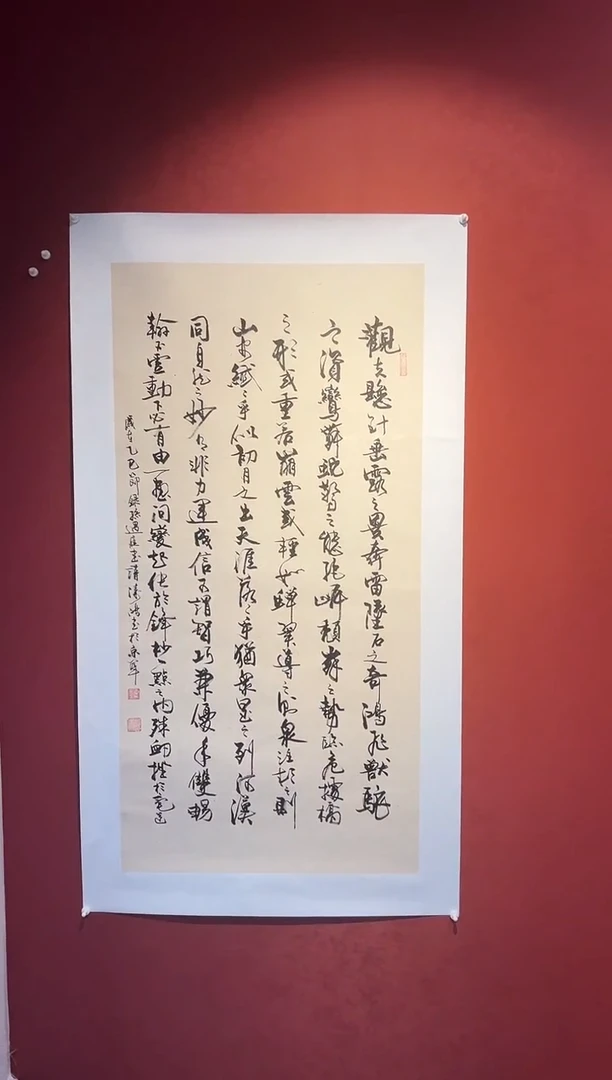 觀夫懸針垂露之異奔雷墜石之奇鴻飛獸駭
之資鸞舞蛇驚之態絕岸頹峰之勢臨危據槁
之形或重若崩雲或輕如蟬翼導之則泉注頓之則
山安纖纖乎似初月之出天涯落落乎猶衆星之列河漢
同自然之妙有非力運成信可謂智巧兼優手雙暢
翰不虛動下必有由一畫之間變起伏於鋒杪一點之內殊衄挫於毫芒
歲在乙巳節錄孫過庭書譜書於